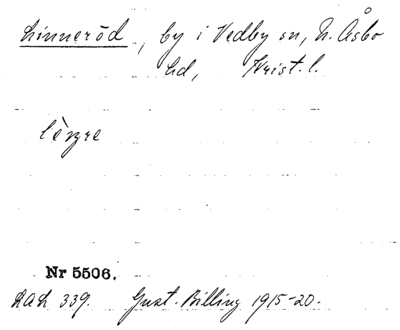 Linneröd, by i Vedby sn, N. Åsbo
hd, Krist. l.
Nr 5506.
LAL 339. Gust. Billing 1915-20.